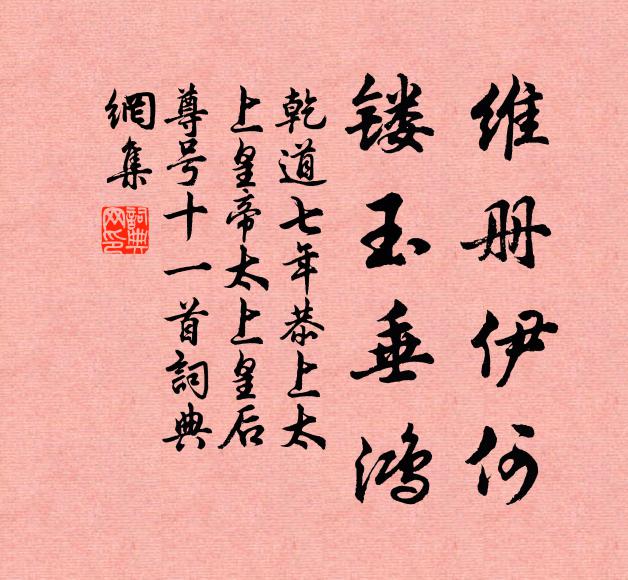 维册伊何
镂玉垂鸿
乾道七年恭上太
上皇帝太上皇后
尊号十一首詞典
網集
詞典網印